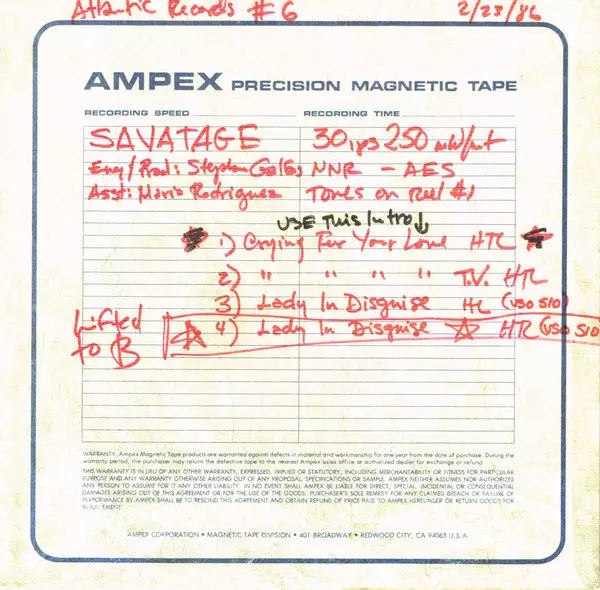 Atlantic Records #6 2/23/86
AMPEX PRECISION MAGNETIC TAPE
RECORDING SPEED RECORDING TIME
SAVATAGE 30ips 250 nW/m
Eng/Prod: Stephan Galfas NNR - AES
Asst: Mario Rodriguez Tones on Reel #1
USE This Intro ↓
1) Crying For Your Love HTR
2) " " " " T.V. HTR
3) Lady In Disguise (USO SIO)
Lifted to B
☆ 4) Lady In Disguise ☆ HTR (USO SIO
WARRANTY. Ampex Magnetic Tape products are warranted against defects in material and workmanship for one year from the date of purchase. During the
warranty period, the purchaser may return the defective tape to the nearest Ampex sales office or authorized dealer for exchange or refund.
THIS WARRANTY IS IN LIEU OF ANY OTHER WARRANTY, EXPRESSED, IMPLIED OR STATUTORY, INCLUDING MERCHANTABILITY OR FITNESS FOR PARTICULAR
PURPOSE AND ANY WARRANTY OTHERWISE ARISING OUT OF ANY PROPOSAL, SPECIFICATIONS OR SAMPLE. AMPEX NEITHER ASSUMES NOR AUTHORIZES
ANY PERSON TO ASSUME FOR IT ANY OTHER LIABILITY. IN NO EVENT SHALL AMPEX BE LIABLE FOR DIRECT, SPECIAL, INCIDENTAL OR CONSEQUENTIAL
DAMAGES ARISING OUT OF THIS AGREEMENT OR FOR THE USE OF THE GOODS. PURCHASER'S SOLE REMEDY FOR ANY CLAIMED BREACH OR FAILURE OF
PERFORMANCE BY AMPEX SHALL BE TO RESCIND THIS AGREEMENT AND OBTAIN REFUND OF PRICE PAID TO AMPEX HEREUNDER OR RETURN GOODS FOR
REPLACEMENT.
AMPEX CORPORATION • MAGNETIC TAPE DIVISION • 401 BROADWAY • REDWOOD CITY, CA 94063 U.S.A.